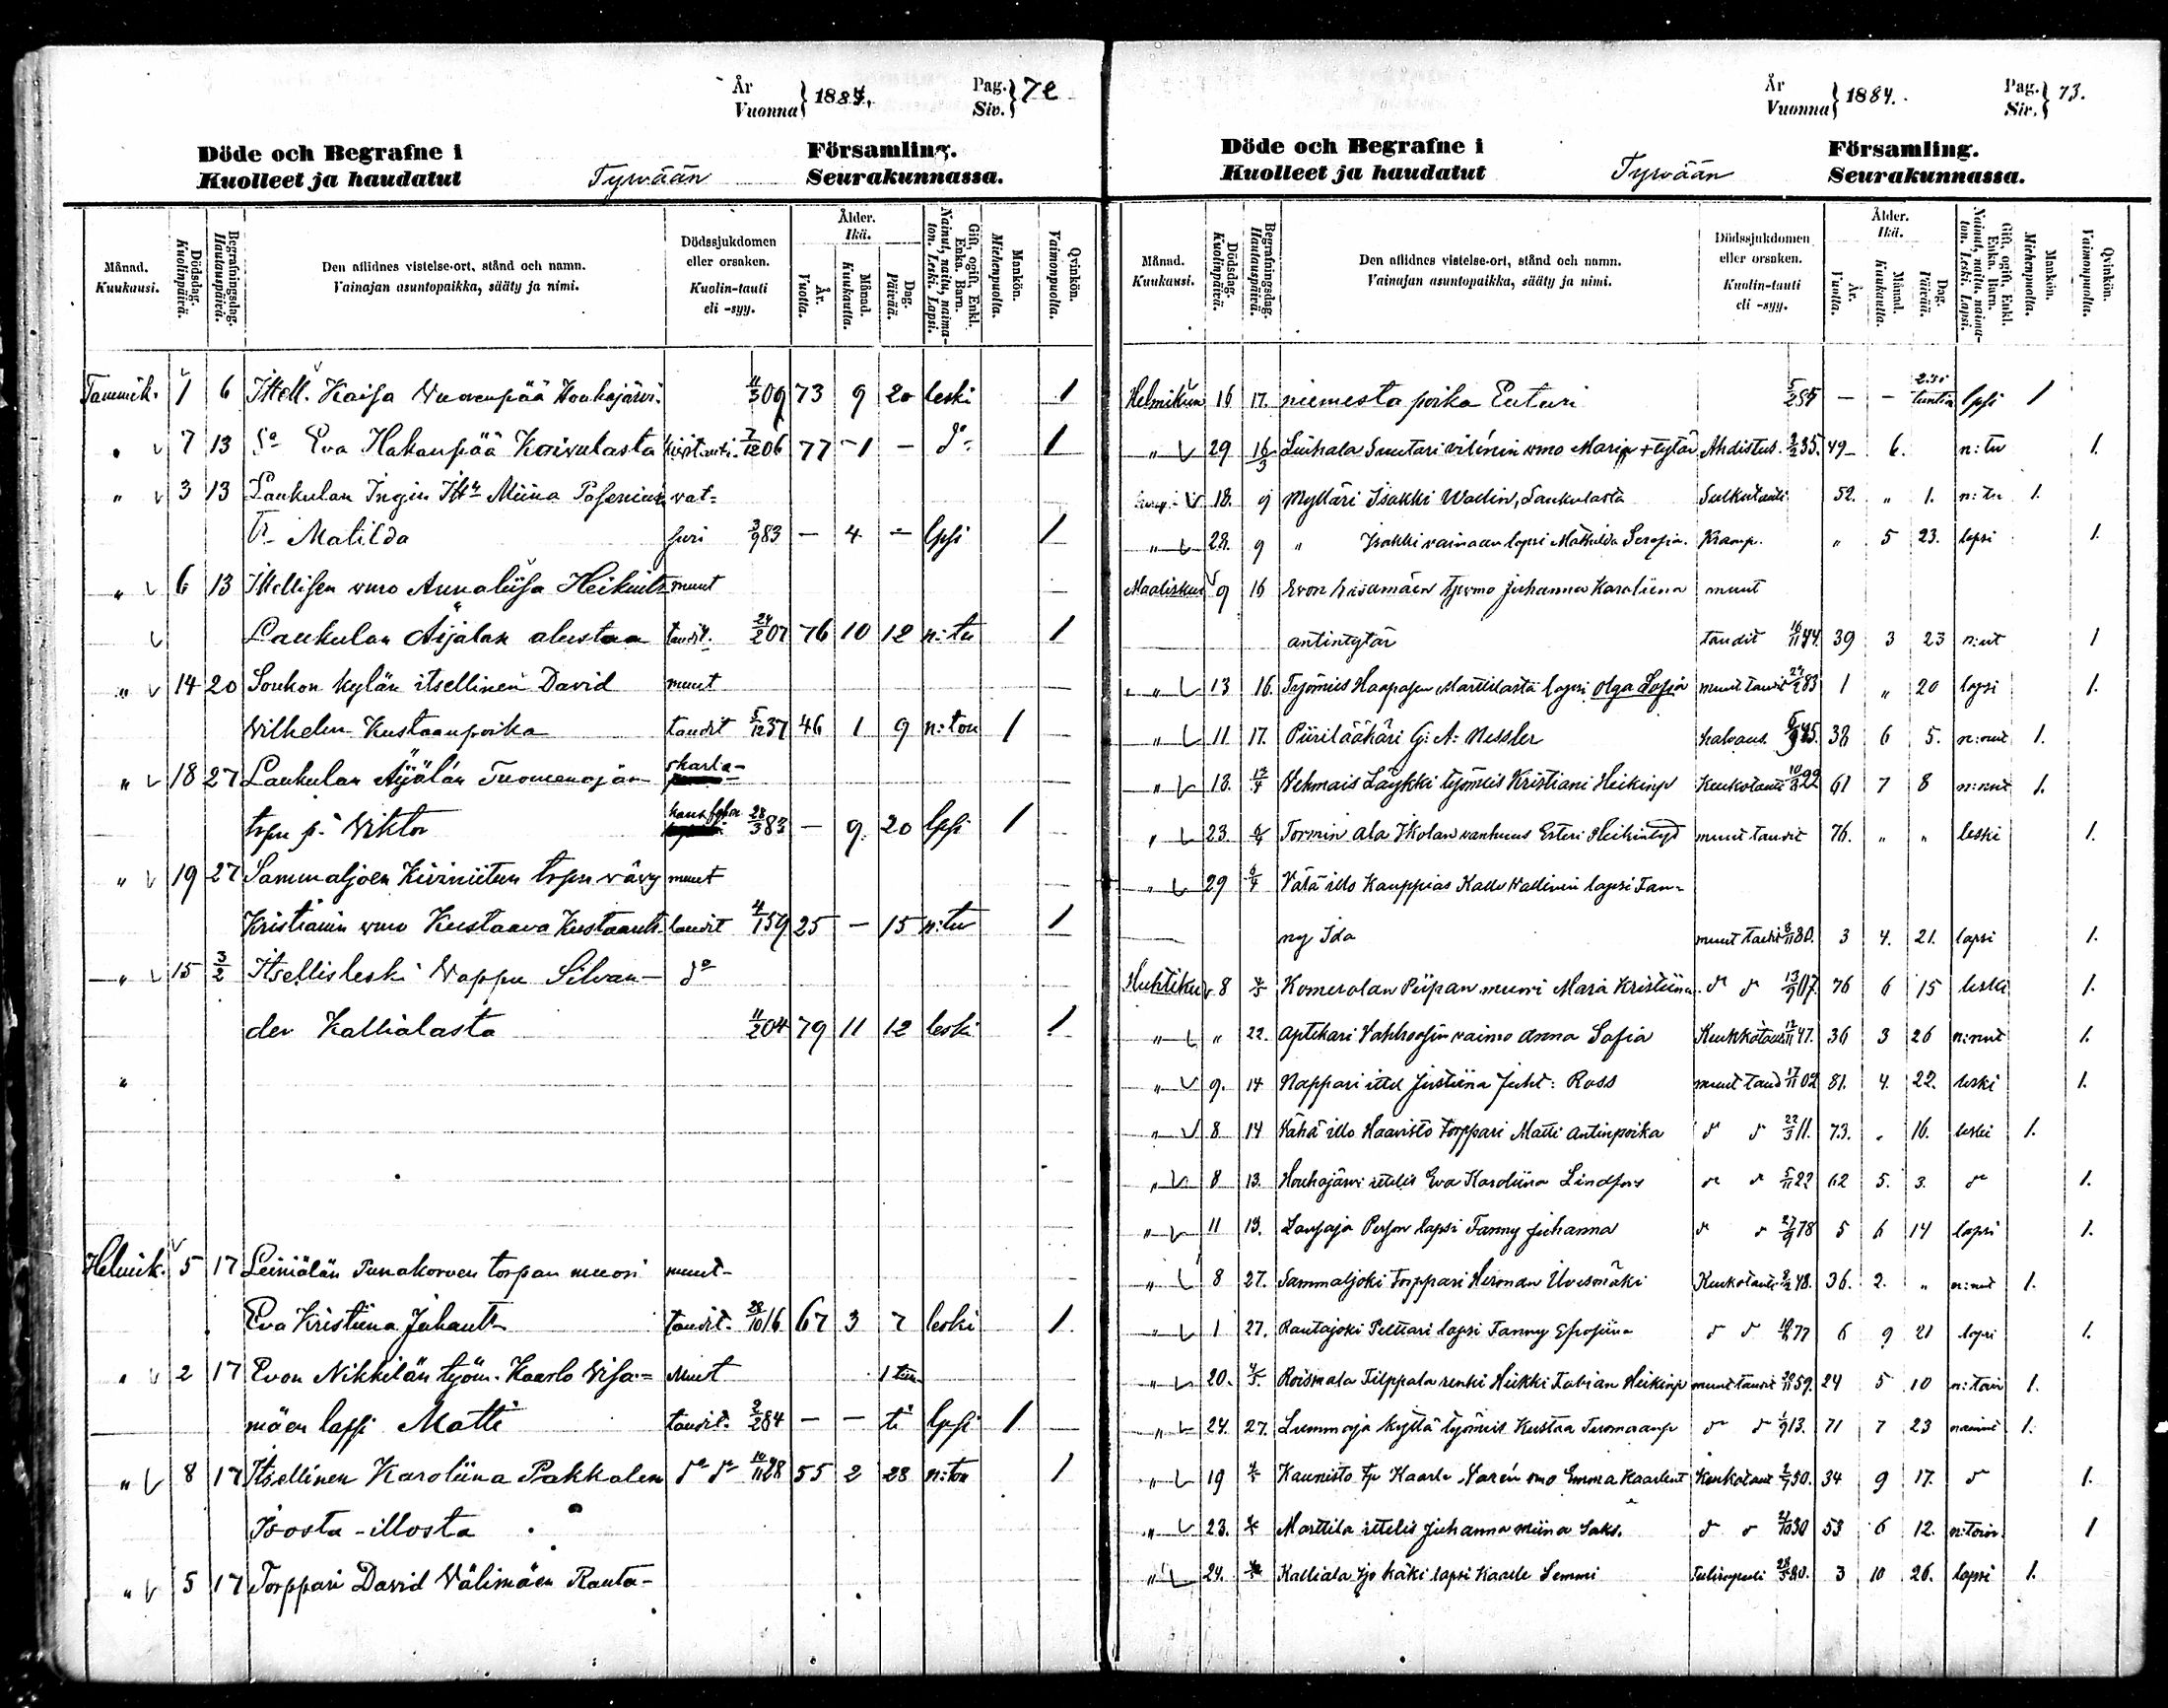 År
Vuonna } 1884.
Pag.
Siv. } 72
Döde och Begrafne i Församling.
Kuolleet ja haudatut Tyrvään Seurakunnassa.
Månad. Kuukausi.
Dödsdag. Kuolinpäivä.
Begrafningsdag. Hautauspäivä.
Den aflidnes vistelse-ort, stånd och namn.
Vainajan asuntopaikka, sääty ja nimi.
Dödssjukdomen eller orsaken.
Kuolin-tauti eli -syy.
Ålder. Ikä.
År. Vuotta.
Månad. Kuukautta.
Dag. Päivää.
Gift, ogift, Enkl. Enka. Barn.
Nainut, naitu, naimaton. Leski. Lapsi.
Mankön. Miehenpuolta.
Qvinkön. Vaimonpuolta.
Tammik. 1 6 Ittell. Kaisa Vuorenpää Houhajärvi. 11/3 09 73 9 20 leski 1
" 7 13 So Eva Hakanpää Koivulasta 7/12 06 77 1 - do 1
" 3 13 Laukulan Miina vat-
Tr Matilda suri 3/9 83 - 4 - lpsi 1
" 6 13 Ittellisen vmo Annaliisa Heikint muut
Laukulan Äijälän alustaa taudit. 24/2 07 76 10 12 n:tu 1
" 14 20 Soukon kylän itsellinen David muut
Wilhelm Kustaanpoika taudit 5/12 37 46 1 9 n:ton 1
" 18 27 Laukulan Äijälän Tuomenojan skarla-
trpn p. Viktor 28/3 83 - 9 20 lpsi 1
" 19 27 Sammaljoen Kiviniitun trpn vävy muut
Kristianin vmo Kustaava Kustaant. taudit 4/1 59 25 - 15 n:tu 1
" 15 3/2 Itsellisleski Vappu Silvan- do
der Kallialasta 11/2 04 79 11 12 leski 1
"
Helmik. 5 17 Leiniälän Tunakorven torpan muori muut-
Eva Kristiina Juhant taudit. 28/10 16 67 3 7 leski 1.
" 2 17 Evon Nikkilän työm. Kaarlo Visa- Muut 1 tun
mäen lapsi Matti taudit. 2/2 84 - - ti lpsi 1
" 8 17 Itsellinen Karoliina Pakkalen do do 10/11 28 55 2 28 n:ton 1
Isosta-illosta
" 5 17 Torppari David Välimäen Rauta-
År
Vuonna } 1884.
Pag.
Siv. } 73.
Döde och Begrafne i Församling.
Kuolleet ja haudatut Tyrvään Seurakunnassa.
Månad. Kuukausi.
Dödsdag. Kuolinpäivä.
Begrafningsdag. Hautauspäivä.
Den aflidnes vistelse-ort, stånd och namn.
Vainajan asuntopaikka, sääty ja nimi.
Dödssjukdomen eller orsaken.
Kuolin-tauti eli -syy.
Ålder. Ikä.
År. Vuotta.
Månad. Kuukautta.
Dag. Päivää.
Gift, ogift, Enkl. Enka. Barn.
Nainut, naitu, naimaton. Leski. Lapsi.
Mankön. Miehenpuolta.
Qvinkön. Vaimonpuolta.
Helmikun 16 17. niemestä poika Enturi - - tuntia lpsi 1
" 29 16/3 Liuhala Suutari vmo Maria tytär Ahdistus. 2/2 35. 49 6. n:tu 1.
18. 9 Mylläri Isakki Wadin, Laukulasta Sulkutauti 52. " 1. n:tu 1.
" 28. 9 " Isakki vainaan lapsi Mathilda Serafia. Kramp. " 5 23. lapsi 1.
Maalisku 9 16 Evon Visamäen tjvmo Juhanna Karoliina muut
antintytär taudit 16/11 44. 39 3 23 n:ut 1
" 13 16. Työmies Haapasen Marttilasta lapsi Olga Sofia muut taudit 83 1 " 20 lapsi 1.
" 11 17. Piirilääkäri G: A: Nessler halvaus. 45. 38 6 5. n:nut 1.
" 18. 13/4 Vehmais Läykki työmies Kristiani Heikinp Keuhkotauti 22 61 7 8 n:nut 1.
" 23. 6/4 Tormin Ala Ikolan vanhuus Esteri Heikintyt muut taudit 76. " " leski 1.
" 29 6/4 Vätä illo Kauppias Kalle Wallinin lapsi Fan-
ny Ida muut taudit 8/11 80. 3 4. 21. lapsi 1.
Huhtiku 8 Komeralan Piipan muori Maria Kristiina do do 13/9 07. 76 6 15 leski 1.
" " 22. Aptekari vaimo Anna Sofia Keuhkotauti 47. 36 3 26 n:nut 1.
" 9. 14 Nappari ittel Justiina Juht: Ross muut taud 17/11 02 81. 4. 22. leski 1.
" 8 14 Vähä illo Haavisto Torppari Matti Antinpoika do do 22/3 11. 73. " 16. leski 1.
" 8 13. Houhajärvi ittelis Eva Karoliina Lindfors do do 5/11 22 62 5. 3. do 1.
" 11 13. Lapsi Fanny Juhanna do do 27/9 78 5 6 14 lapsi 1.
" 8 27. Sammaljoki Torppari Herman Uvesmäki Keuhkotauti 8/2 48. 36. 2. " n:nut 1.
" 1 27. Rautajoki Pelttari lapsi Fanny Efrosiina do do 77 6 9 21 lapsi 1.
" 20. Roismala Tilppala renki Heikki Fabian Heikinp muut taudit 59. 24 5 10 n:toin 1.
" 24. 27. Lummaja kyllä työmies Kustaa Tuomaanp do do 1/9 13. 71 7 23 nainut 1.
" 19 Kaunisto tp Kaarle Varén vmo Emma Kaarlent Keuhkotaut 2/7 50. 34 9 17. do 1.
" 23. Marttila ittelis Juhanna Miina Saks. do do 30 53 6 12. n:toin. 1
" 24. Kalliala häki lapsi Kaarle Semmi 28/5 80. 3 10 26. lapsi 1.